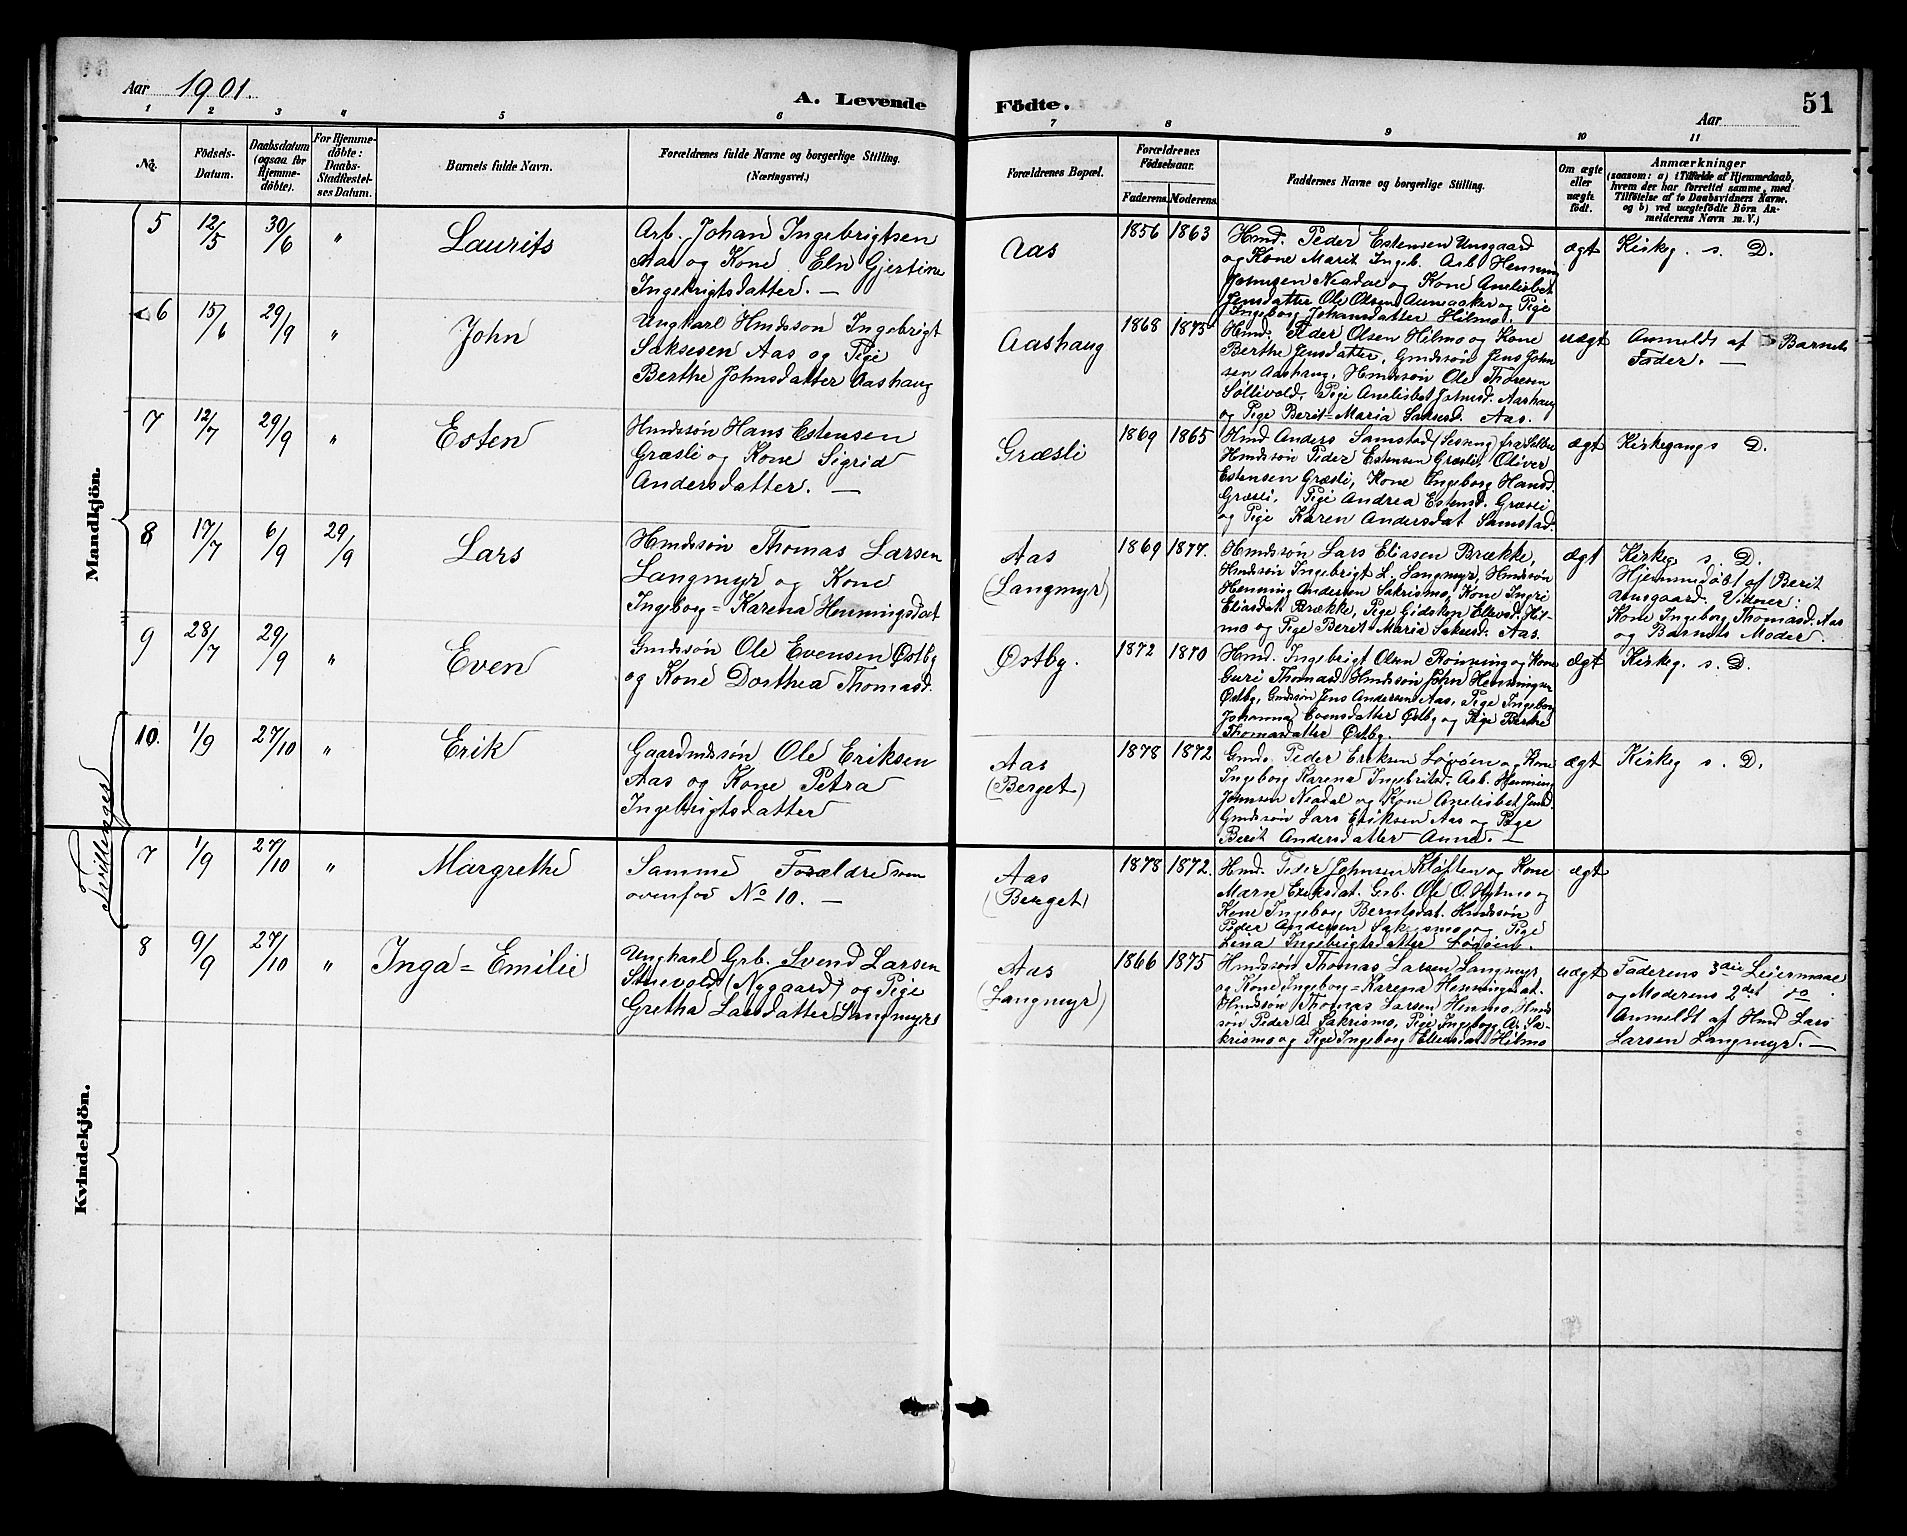 Aar 1901.
A. Levende
1 2 3 4 5 6
No.
Födsels-
Datum.
Daabsdatum
(ogsaa for
Hjemme-
döbte).
For Hjemme-
döbte:
Daabs-
Stadfæstel-
ses Datum.
Barnets fulde Navn.
Forældrenes fulde Navne og borgerlige Stilling.
(Næringsvei.)
Mandkjön.
5 12/5 30/6 " Laurits
Arb. Johan Ingebrigtsen
Aas og Kone Eln Gjertine
Ingebrigtsdatter. —
6 15/6 29/9 " John
Ungkarl Hmdssön Ingebrigt
Saksesen Aas og Pige
Berthe Johnsdatter Aashaug
7 12/7 29/9 " Esten
Hmdssön Hans Estensen
Græsli og Kone Sigrid
Andersdatter. —
8 17/7 6/9 29/9 Lars
Hmdssön Thomas Larsen
Langmyr og Kone
Ingeborg=Karena Henningsdat
9 28/7 29/9 " Even
Gmdssön Ole Evensen Østby
og Kone Dorthea Thomasd.
10. 1/9 27/10 " Erik
Gaardmdssön Ole Eriksen
Aas og Kone Petra
Ingebrigtsdatter
Tvillinger
Kvindekjön.
7 1/9 27/10 " Margrethe
Samme Forældre som
ovenfor No 10. —
8 9/9 27/10 " Inga=Emilie
Ungkarl Grb. Svend Larsen
Stuevold (Nygaard) og Pige
Gretha Larsdatter Langmyr
Födte.
51
Aar
7 8 9 10 11
Forældrenes Bopæl.
Forældrenes
Födselsaar.
Faderens. Moderens.
Faddernes Navne og borgerlige Stilling.
Om ægte
eller
uægte
födt.
Anmærkninger
(saasom: a) i Tilfælde af Hjemmedaab,
hvem der har forrettet samme, med
Tilföielse af to Daabsvidners Navne,
og b) ved uægtefödte Börn An-
melderens Navn m. V.)
Aas 1856 1863
Hmd. Peder Estensen Unsgaard
og Kone Marit Ingeb. Arb. Henning
Johnsen Neadal og Kone Anelisbet
Jensdatter Ole Olsen Auneaaker og Pige
Ingeborg Johansdatter Hilmo.
ægt Kirkeg. s. D.
Aashaug 1868 1875
Hmd. Peder Olsen Hilmo og Kone
Berthe Jensdatter, Gmdssön Jens John
sen Aashaug, Hmdssön Ole Thoresen
Söllivold, Pige Anelisbet Johnsd. Aashaug
og Pige Berit=Maria Saksesd. Aas.
uægt Anmeldt af Barnets
Fader. —
Græsli 1869 1865
Hmd Anders Samstad (Sesseng) fra Selbu
Hmdssön Peder Estensen Græsli, Oliver
Estensen Græsli, Kone Ingeborg Hansd.
Græsli, Pige Andrea Estensd. Græsli
og Pige Karen Andersdat Samstad.
ægt Kirkegangs D.
Aas
(Langmyr) 1869 1877.
Hmdssön Lars Eliasen Brække,
Hmdssön Ingebrigt L. Langmyr, Hmdssön
Henning Andersen Sakrismo, Kone Ingri
Eliasdat Brække, Pige Gidsken Ellevsd. Hil-
mo og Pige Berit=Maria Saksesd. Aas.
ægt Kirkeg. s. D.
Hjemmedöbt af Berit
Unsgaard. Vidner:
Kone Ingeborg Thomasd. Aas
og Barnets Moder.
Østby. 1872 1870
Hmd. Ingebrigt Olsen Rönning og Kone
Guri Thomasd. Hmdssön John Henningsen
Østby, Gmdssön Jens Andersen Aas, Pige Ingeborg
Johanna Evensdatter Østby og Pige Berthe
Thomasdatter Østby.
ægt Kirkeg. s. D.
Aas
(Berget) 1878 1872
Gmd. Peder Eriksen Løvöen og Kone
Ingeborg Karena Ingebritsd. Arb. Henning
Johnsen Neadal og Kone Anelisbet Jensd.
Gmdssön Lars Eriksen Aas og Pige
Berit Andersdatter Aune. —
ægt Kirkeg s. D.
Aas
(Berget) 1878 1872.
Hmd. Peder Johnsen Klöften og Kone
Marne Eriksdat. Grb. Ole O. Nytrö og
Kone Ingeborg Berntsdat. Hmdssön
Peder Andersen Sakrismo og Pige
Lina Ingebrigtsdatter Løvöen.
ægt
Aas
(Langmyr) 1866 1875
Hmdssön Thomas Larsen Langmyr
og Kone Ingeborg=Karena Henningsdat.
Hmdssön Thomas Larsen Henmo, Hmds
sön Peder A. Sakrismo, Pige Ingeborg A. Sa-
krismo og Pige Ingeborg Ellevsdat Hilmo
uægt Faderens 3die Leiermaal
og Moderens 2det do
Anmeldt af Hmd Lars
Larsen Langmyr. —